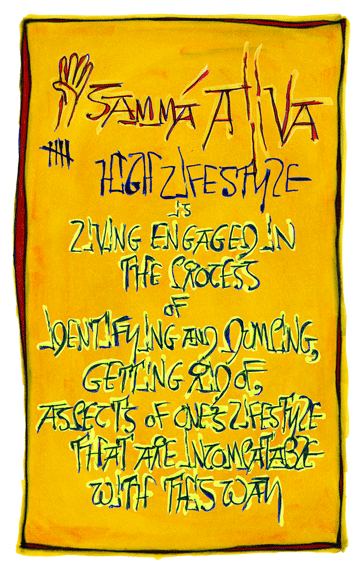 SAMMÁ AJIVA
HIGH LIFESTYLE
IS
LIVING ENGAGED IN
THE PROCESS
OF
IDENTIFYING AND DUMPING,
GETTING RID OF,
ASPECTS OF ONE'S LIFESTYLE
THAT ARE INCOMPATABLE
WITH THIS WAY